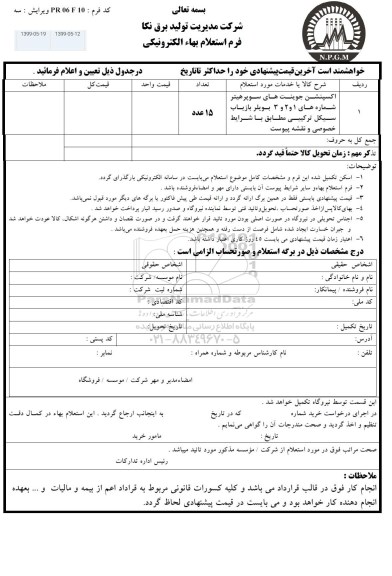 بسمه تعالی
کد فرم : PR 06 F 10 ویرایش : سه
شرکت مدیریت تولید برق نکا
فرم استعلام بهاء الکترونیکی
1399-05-12
1399-05-19
N.P.G.M
خواهشمند است آخرین قیمت پیشنهادی خود را حداکثر تا تاریخ درجدول ذیل تعیین و اعلام فرمائید .
ردیف شرح کالا یا خدمات مورد استعلام تعداد قیمت واحد قیمت کل ملاحظات
۱ اکسپنشن جوینت های سوپرهیتر شماره های ۱و۲و ۳ بویلر بازیاب سیکل ترکیبی مطابق با شرایط خصوصی و نقشه پیوست ۱۵ عدد
جمع کل به حروف:
تذکر مهم : زمان تحویل کالا حتماً قید گردد.
توضیحات:
۱- اسکن تکمیل شده این فرم و مشخصات کامل موضوع استعلام می‌بایست در سامانه الکترونیکی بارگذاری گردد.
۲- فرم استعلام بهاءو سایر شرایط پیوست آن بایستی دارای مهر و امضاءفروشنده باشد .
۳- قیمت پیشنهادی بایستی فقط در همین برگ ارائه گردد و ارائه قیمت طی پیش فاکتور یا برگه های دیگر مورد قبول نمی‌باشد.
۴- بهای کالا پس از اخذ صورتحساب ،تحویل و تائید فنی توسط نماینده نیروگاه و صدور رسید انبار پرداخت خواهد شد.
۵- اجناس تحویلی در نیروگاه در صورت اصلی بودن مورد تائید قرار خواهند گرفت و در صورت نقصان و داشتن هرگونه اشکال، کالا عودت خواهد شد
و جبران خسارت ایجاد شده شامل فرصت از دست رفته و همچنین هزینه حمل بعهده فروشنده می‌باشد .
۶- اعتبار زمان قیمت پیشنهادی می بایست روز کاری اعتبار داشته باشد.
درج مشخصات ذیل در برگه استعلام و صورتحساب الزامی است :
اشخاص حقیقی اشخاص حقوقی
نام و نام خانوادگی : نام موسسه/ شرکت :
نام فروشنده / پیمانکار: شماره ثبت شرکت :
کد ملی: کد اقتصادی:
شناسه ملی:
تاریخ تکمیل : تاریخ تحویل:
آدرس: کد پستی :
تلفن : نام کارشناس مربوطه و شماره همراه : نمابر :
ParsNamadData
۰۲۱-۸۸۳۴۹۶۷۰-۵
امضاءمدیر و مهر شرکت / موسسه / فروشگاه
این قسمت توسط نیروگاه تکمیل خواهد شد .
در اجرای درخواست خرید شماره که در تاریخ به اینجانب ارجاع گردید . این استعلام بهاء در کمال دقت
تنظیم و اخذ گردید و صحت مندرجات آن را گواهی می‌نمایم .
تاریخ : مامور خرید
صحت مراتب فوق در مورد استعلام از شرکت / مؤسسه مذکور مورد تائید میباشد .
رئیس اداره تدارکات
ملاحظات :
انجام کار فوق در قالب قرارداد می باشد و کلیه کسورات قانونی مربوط به قراداد اعم از بیمه و مالیات و ... بعهده
انجام دهنده کار خواهد بود و می بایست در قیمت پیشنهادی لحاظ گردد.